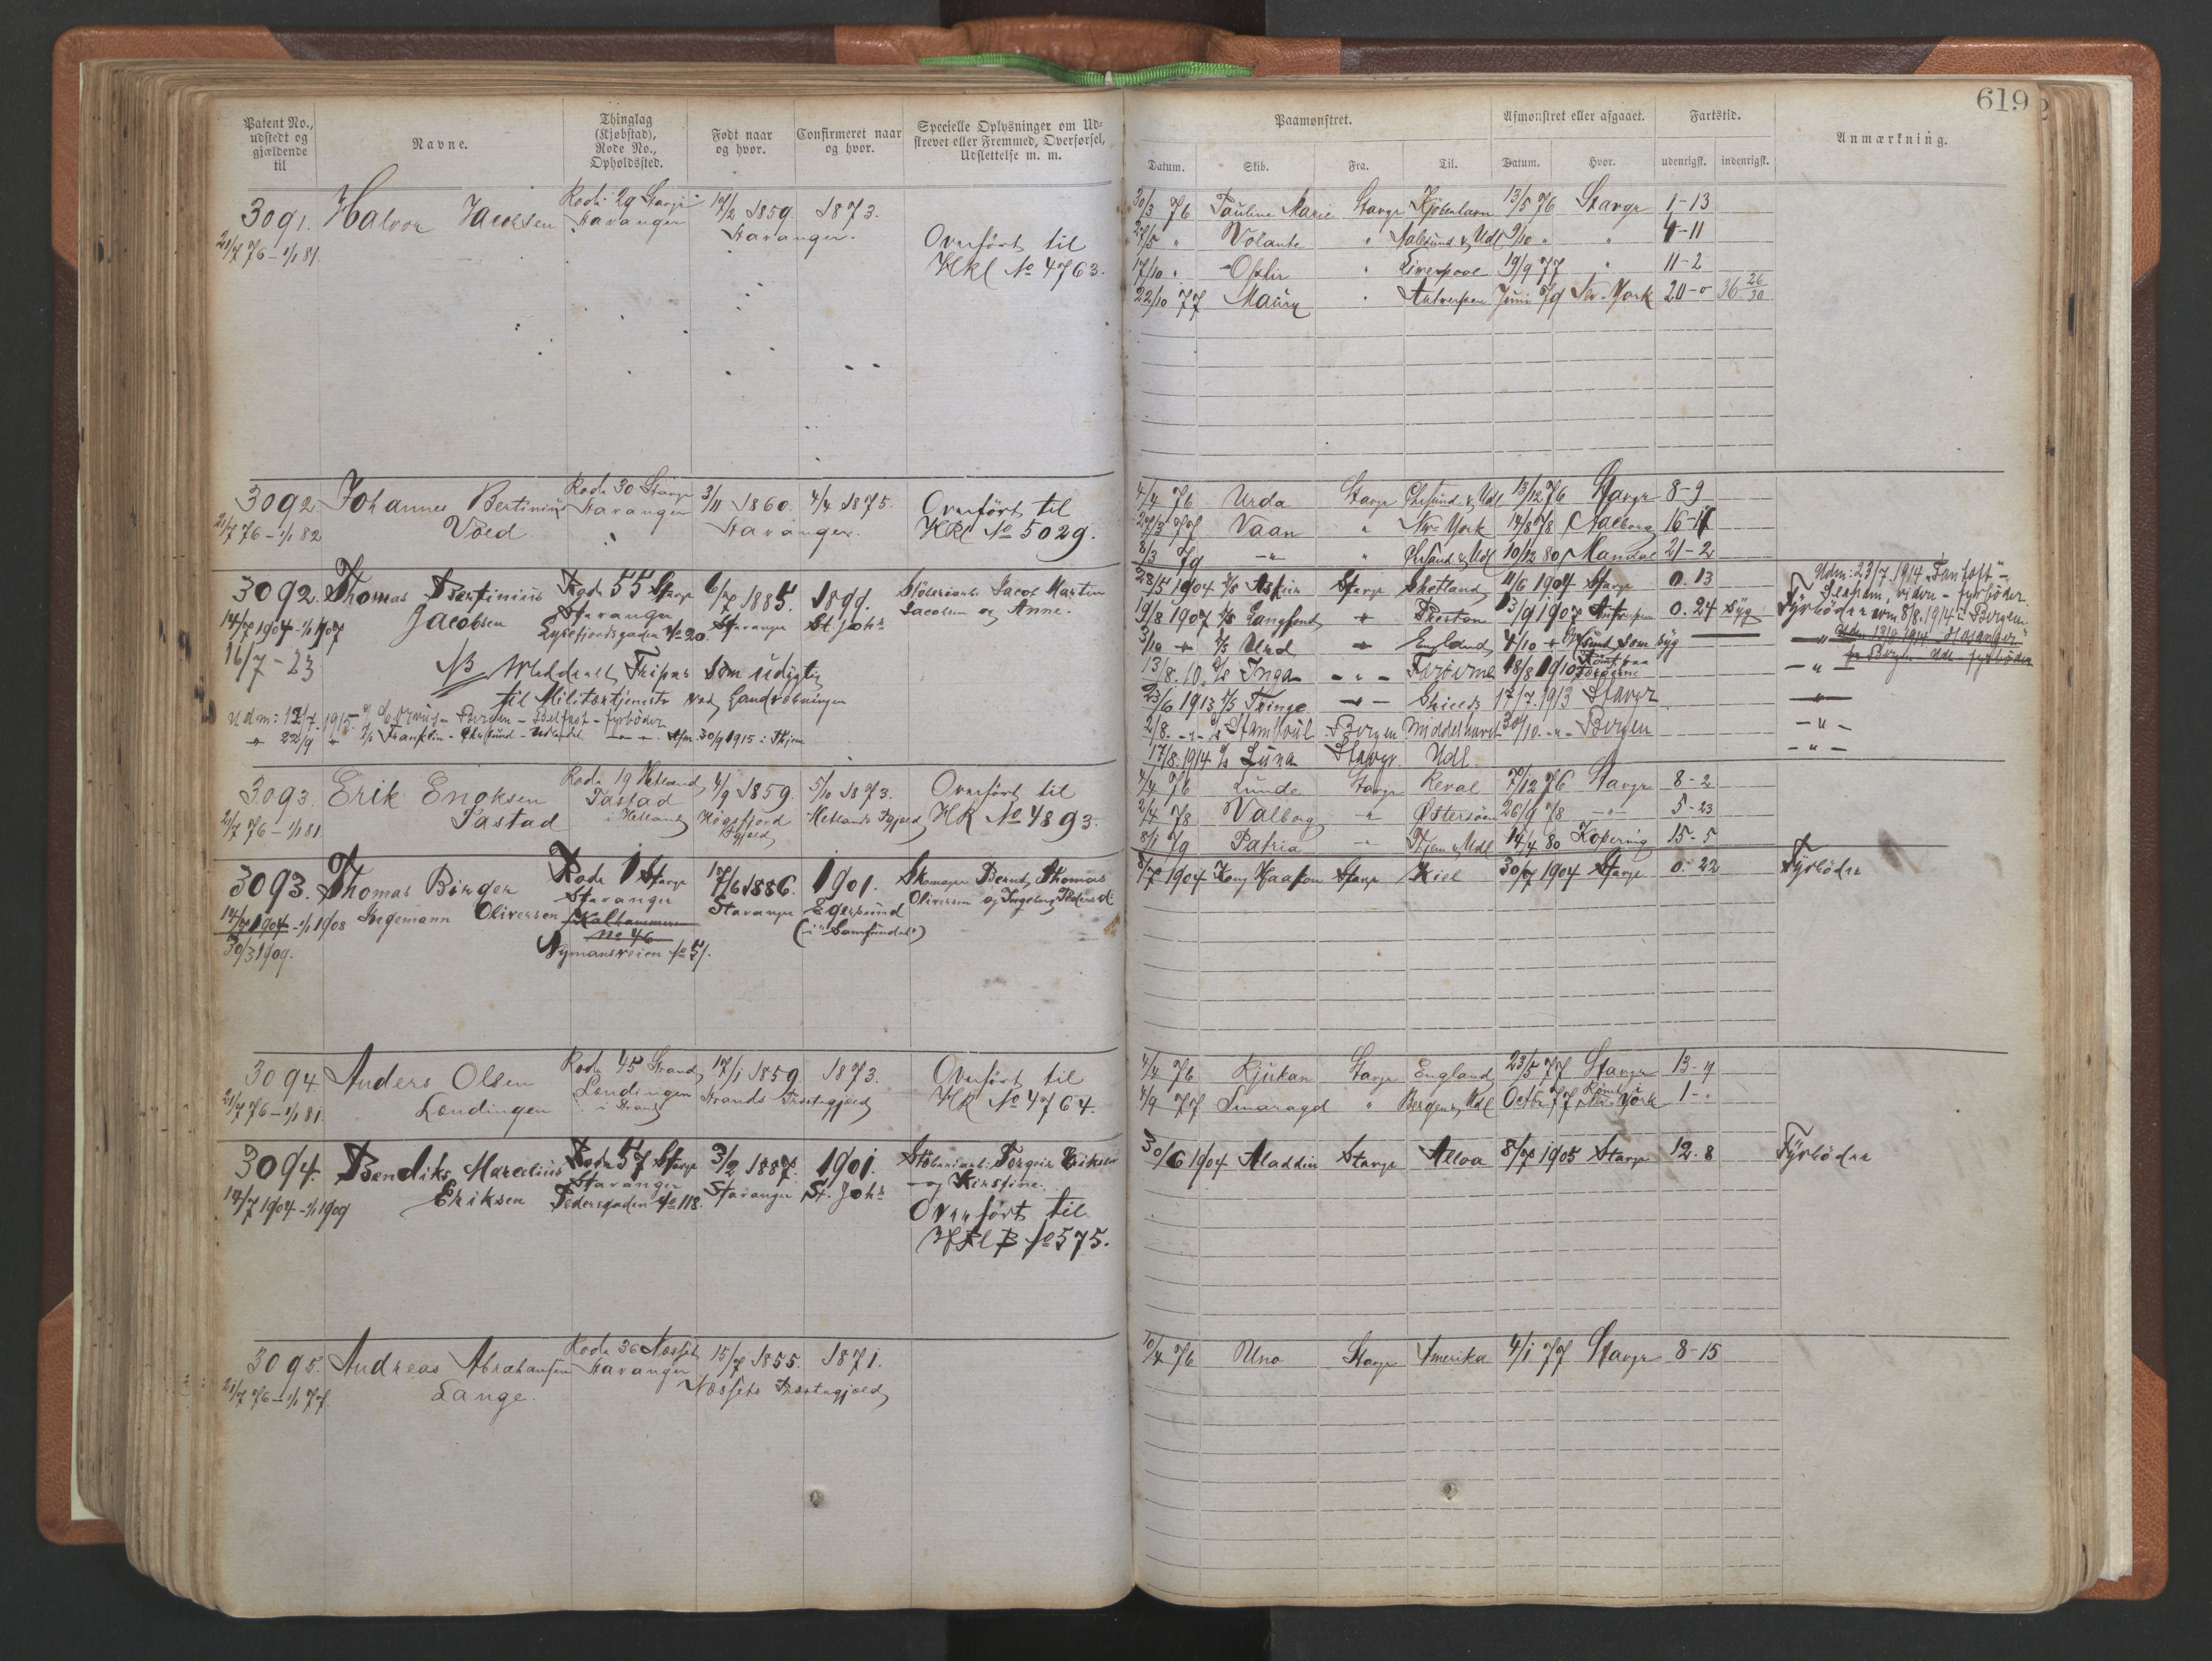 619
Patent No., udstedt og gjældende til
Navne.
Thinglag (Kjøbstad), Rode No., Opholdssted.
Født naar og hvor.
Confirmeret naar og hvor.
Specielle Oplysninger om Udskrevet eller Fremmed, Overførsel, Udslettelse m. m.
Paamønstret.
Afmønstret eller afgaaet.
Fartstid.
Anmærkning.
Datum. Skib. Fra. Til. Datum. Hvor. udenrigsk. indenrigsk.
3091. Halvor Jacobsen Rode 29 Stavgr 17/2 1859. 1873.
21/7 76 - 1/1 81. Stavanger Stavanger.
Overført til
HKl No 4763.
30/3 76 Pauline Marie Stavgr Kjöbenhavn 13/5 76 Stavgr 1-13
27/5 " Volante " Aalesund & Udl 9/10 " " 4-11
17/10 " Ophir " Liverpool 19/9 77 " 11-2
22/10 77 Maury " Antwerpen Juni 79 New-York 20-0 36 26/30
3092. Johannes Bertinius Rode 30 Stavgr 3/11 1860. 4/4 1875. Overført til
21/7 76 - 1/1 82 Voed Stavanger Stavanger. HKl No 5029.
4/4 76 Urda Stavgr Chrsund & Udl 13/12 76 Stavgr 8-9
27/3 77 Vaan " New-York 14/8 78 Aalborg 16-17
8/3 79 -"- " Chrsand & Udl 10/12 80 Mandal 21-2
3092. Thomas Bertinius Rode 55 Stavgr 6/7 1885. 1899. Støberiarb. Jacob Martin
14/7 1904 - 1/1 1907 Jacobsen Stavanger Stavanger St. Johs Jacobsen og Anne.
16/7 - 23 Lysefjordsgaden No 20.
NB Meddeelt Fripas som udygtig
til Militærtjeneste ved Landrobningen
Udm: 12/7 1915 Bergen - Belfast - fyrbøder
" 22/9 " D/S Franklin - Chrsund - Udlandet -"- Afm. 30/9 1915 i Thjem
28/5 1904 D/S Askur Stavgr Shetland 11/6 1904 Stavgr 0.13
19/8 1907 D/S Langfond " Preston 13/9 1907 Antwerpen 0.24 Syg
3/10 " D/S Urd " England 4/10 " Som syg
13/8. 10. D/S Inga -"- Færøerne 18/8 1910 Rømt paa Færøerne
23/6 1913 D/S Tringe -"- Shields 17/7. 1913 Stavgr
2/8. -"- D/S Stamboul Bergen Middelhavet 30/10. -"- Bergen
17/8. 1914 D/S Luna Stavgr. Udl.
Udm: 23/7. 1914 "Fantoft" -
Grghm, videre - fyrbøder.
Fyrbøder afm 8/8. 1914 i Bergen.
Udm 13/8 1914
fra Bergen Udl fyrbøder
-"-
-"-
-"-
-"-
3093. Erik Enoksen Rode 19 Hetland 4/9 1859. 5/10 1873. Overført til
21/7 76 - 1/1 81 Tastad Tastad i Hetland Høgsfjord Pgjeld Hetlands Pgjeld HK No 4893.
4/4 76 Lunde Stavgr Reval 7/12 76 Stavgr 8-2
2/4 78 Valborg " Østersøen 26/9 78 -"- 5-23
8/1 79 Patria -"- Thjem & Udl 14/4 80 Kopervig 15-5
3093. Thomas Birger Rode 1 Stavgr 17/6 1886. 1901. Skomager Bernt Thomas
14/7 1904 - 1/1 1908 Ingemann Oliversen Stavanger Stavanger Egersund Oliversen og Ingeborg Pedersd.
30/3 1909. Kalhammeren No 46 (i "Samfundet")
Nymansveien No 51.
8/7 1904 Kong Haakon Stavgr Kiel 30/7 1904 Stavgr 0.22 Fyrbøder
3094 Anders Olsen Rode 45 Strand 17/1 1859 1873. Overført til
21/7 76 - 1/1 81. Lendingen Lendingen i Strand Strands Præstegjeld HK No 4764.
4/4 76 Rjukan Stavgr England 23/5 77 Stavgr 13-4
4/9 77 Smaragd " Bergen & Udl Octbr 77 Rømt i New York 1-"
3094. Bendiks Marselius Rode 57 Stavgr 3/2 1887. 1901. Støberiarb: Torgeir Eriksen
14/7 1904 - 1/1 1909 Eriksen Stavanger Stavanger St. Johs og Kirstine.
Pedersgaden No 118. Overført til
HKl B No 575.
30/6 1904 Aladdin Stavgr Alloa 8/7 1905 Stavgr 12.8 Fyrbøder
3095. Andreas Abrahamsen Rode 36 Nesset 15/7 1855. 1871.
21/7 76 - 1/1 77. Lange. Stavanger Næssets Præstegjeld
10/4 76 Uno Stavgr Amerika 4/1 77 Stavgr 8-15